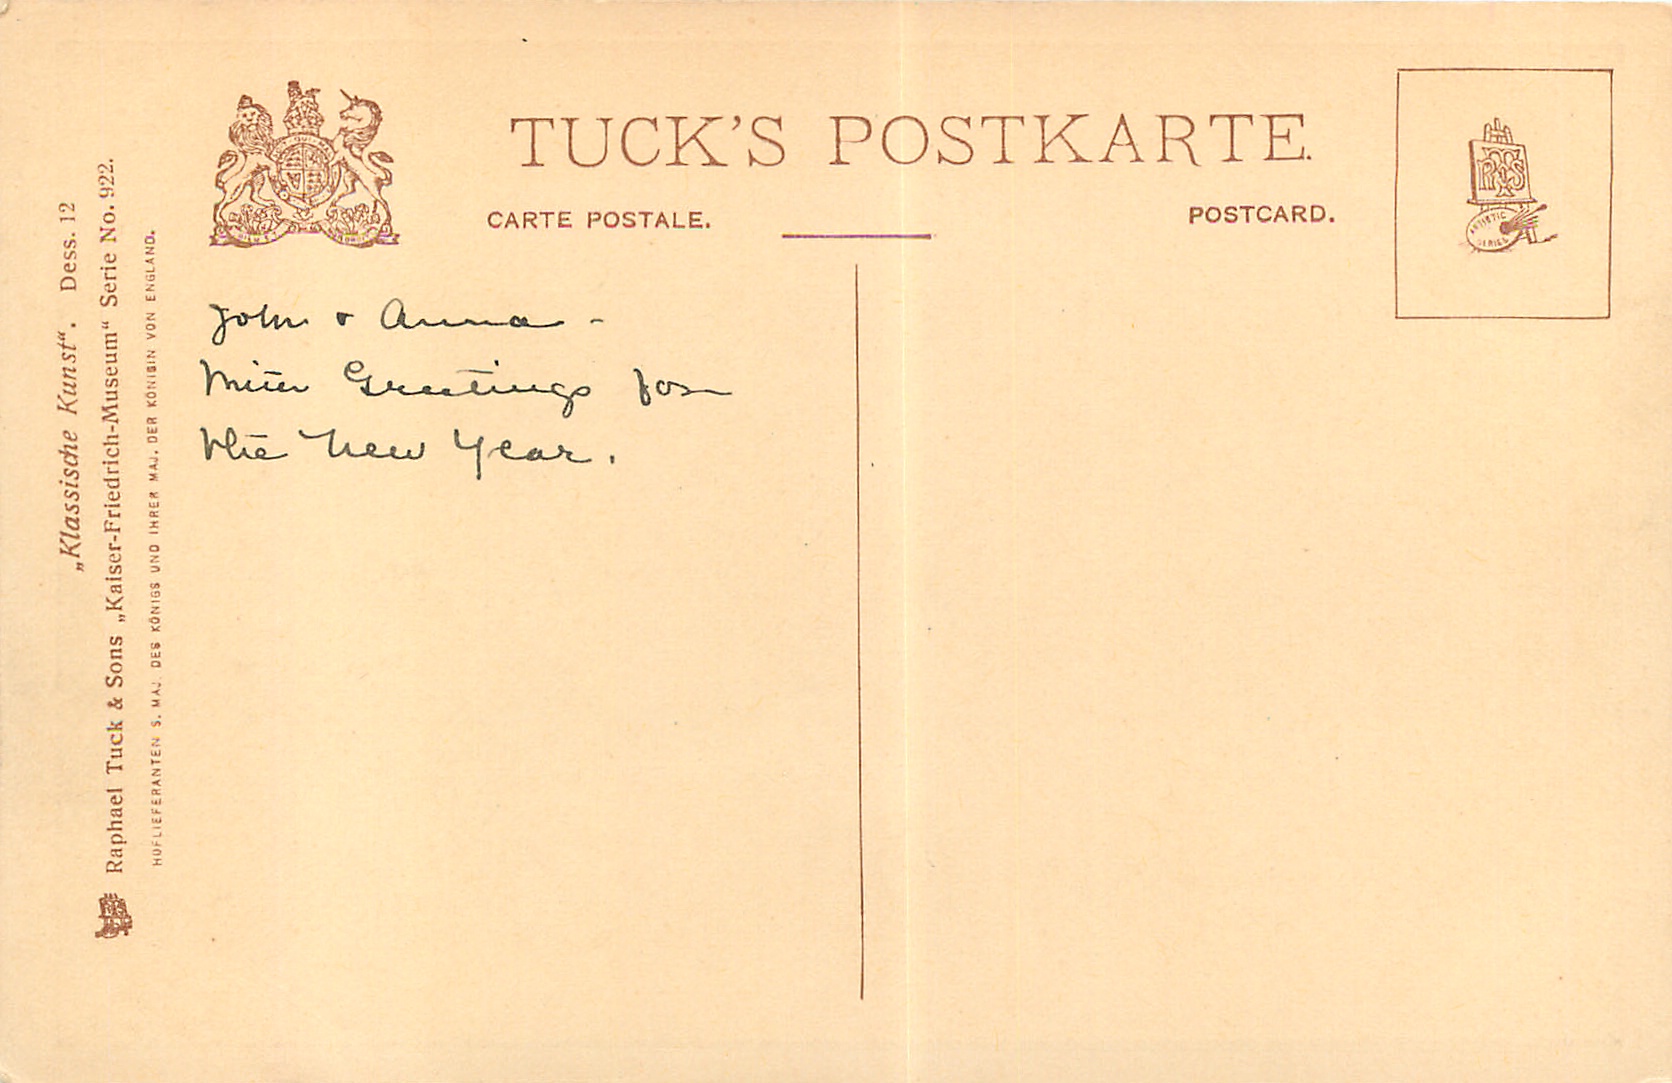 TUCK'S POSTKARTE.
CARTE POSTALE.
POSTCARD.
RTS
ARTISTIC
SERIES
John & Anna -
With Greetings for
the New Year.
„Klassische Kunst“. Dess. 12
Raphael Tuck & Sons „Kaiser-Friedrich-Museum“ Serie No. 922.
HOFLIEFERANTEN S. MAJ. DES KÖNIGS UND IHRER MAJ. DER KÖNIGIN VON ENGLAND.